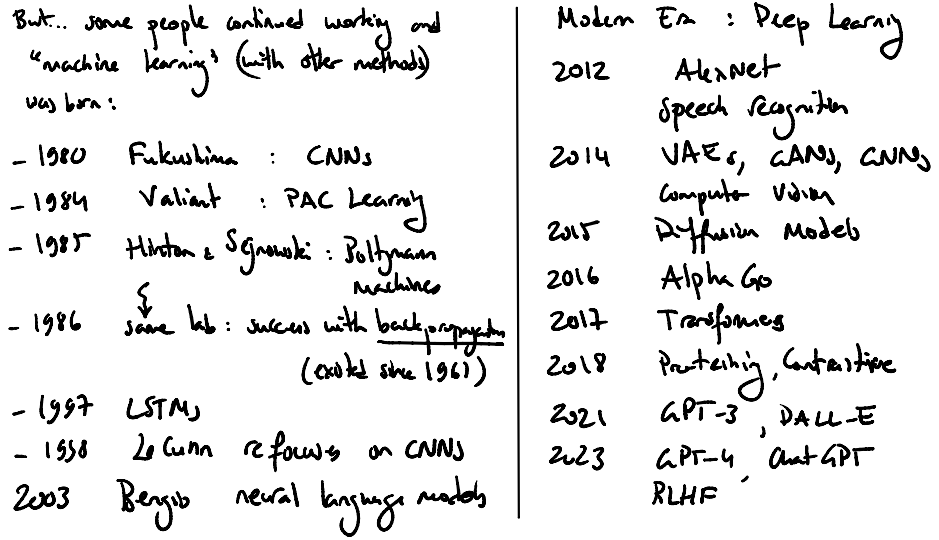 But... some people continued working and
"machine learning" (with other methods)
was born:
- 1980 Fukushima : CNNs
- 1984 Valiant : PAC Learning
- 1985 Hinton & Sejnowski : Boltzmann
machines
- 1986 same lab : success with backpropagation
(existed since 1961)
- 1997 LSTMs
- 1998 LeCunn refocuses on CNNs
2003 Bengio neural language models
Modern Era : Deep Learning
2012 AlexNet
Speech recognition
2014 VAEs, GANs, GNNs
Computer Vision
2015 Diffusion Models
2016 AlphaGo
2017 Transformers
2018 Pretraining, Contrastive
2021 GPT-3, DALL-E
2023 GPT-4, ChatGPT
RLHF